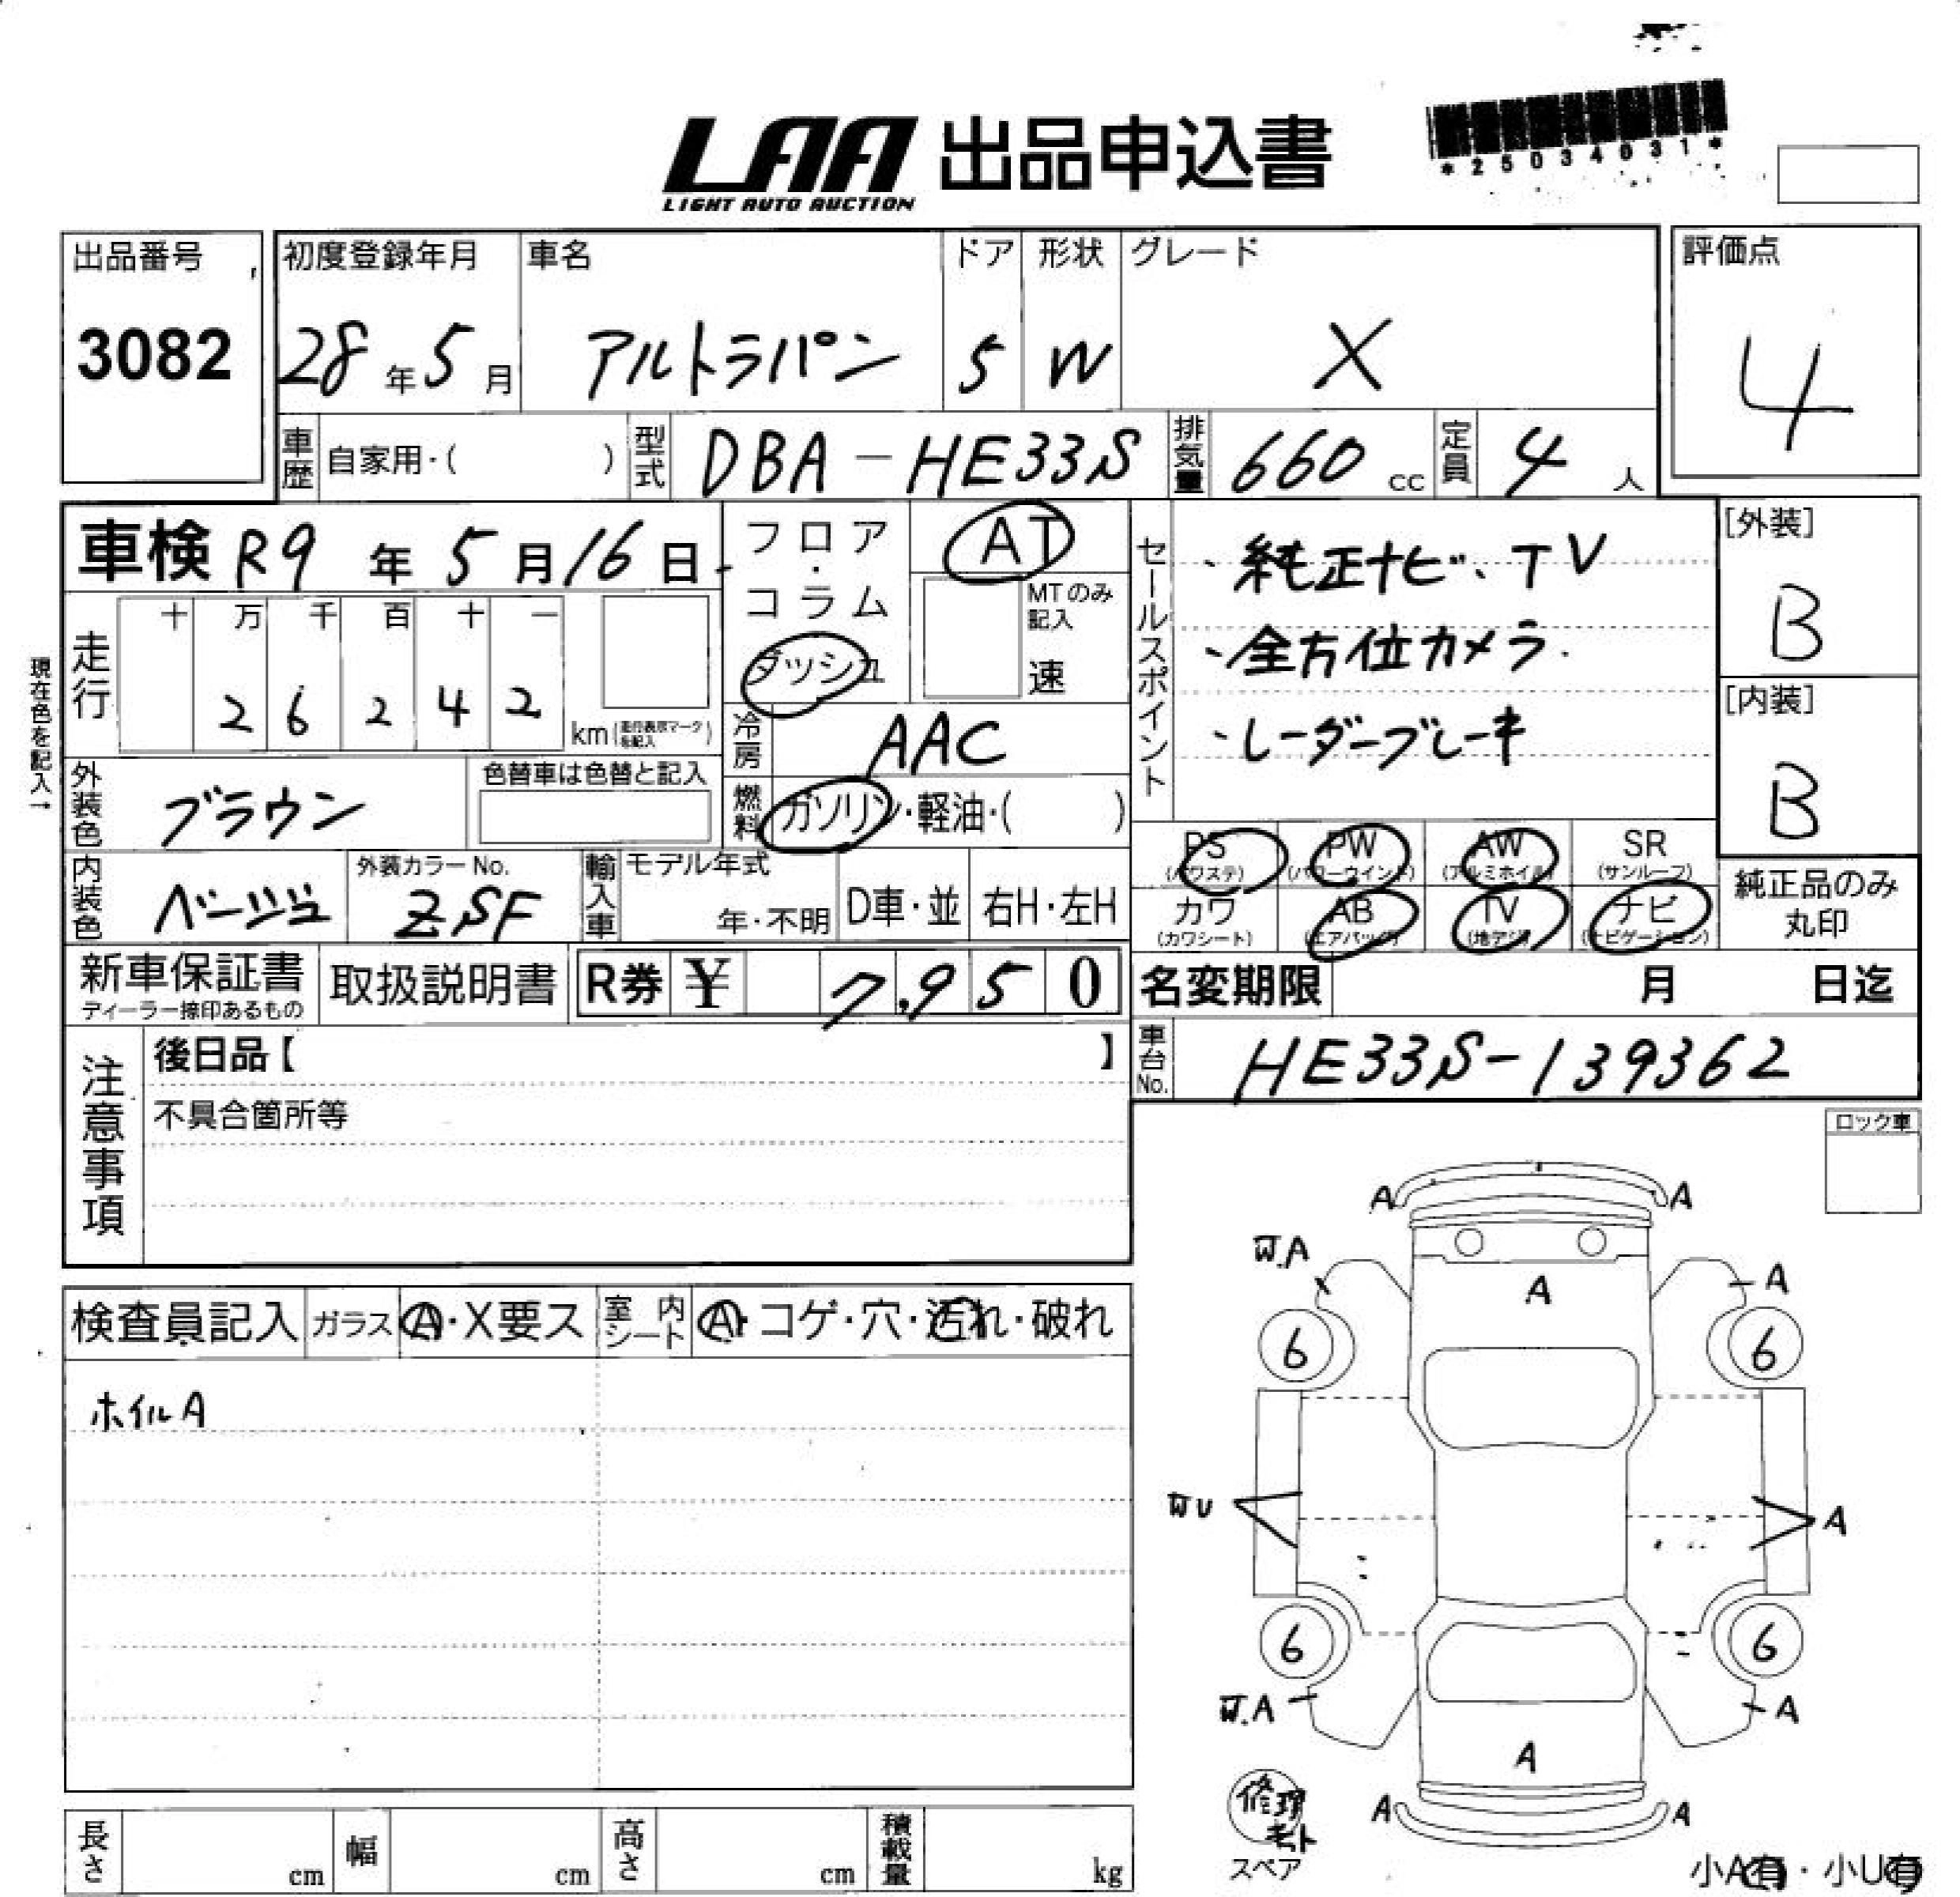 LAA 出品申込書
LIGHT AUTO AUCTION
*25034031*
出品番号
3082
初度登録年月 車名 ドア 形状 グレード
28年5月 アルトラパン 5 W X
評価点
4
車歴 自家用・( ) 型式 DBA-HE33S 排気量 660cc 定員 4人
車検 R9年5月16日
フロア・コラム
ダッシュ
AT
MTのみ記入
速
セールスポイント
・純正ナビ、TV
・全方位カメラ.
・レーダーブレーキ
[外装]
B
[内装]
B
現在色を記入→
走行 十 万 千 百 十 一
2 6 2 4 2 km(走行表示マークを記入)
冷房 AAC
外装色 ブラウン
色替車は色替と記入
燃料 ガソリン・軽油・( )
PS (パワステ) PW (パワーウインド) AW (アルミホイル) SR (サンルーフ)
カワ (カワシート) AB (エアバッグ) TV (地デジ) ナビ (ナビゲーション)
純正品のみ
丸印
内装色 ベージュ 外装カラーNo. ZSF
輸入車 モデル年式
年・不明 D車・並 右H・左H
新車保証書
ディーラー捺印あるもの
取扱説明書
R券 ¥ 7,950
名変期限 月 日迄
車台No. HE33S-139362
注意事項
後日品【 】
不具合箇所等
ロック車
検査員記入 ガラス A・X要ス 室内シート A・コゲ・穴・汚れ・破れ
ホイルA
A A
W.A A A
6 6
WU A
6 6
W.A A
A
A A
修理キット
スペア
小A有・小U有
長さ cm 幅 cm 高さ cm 積載量 kg